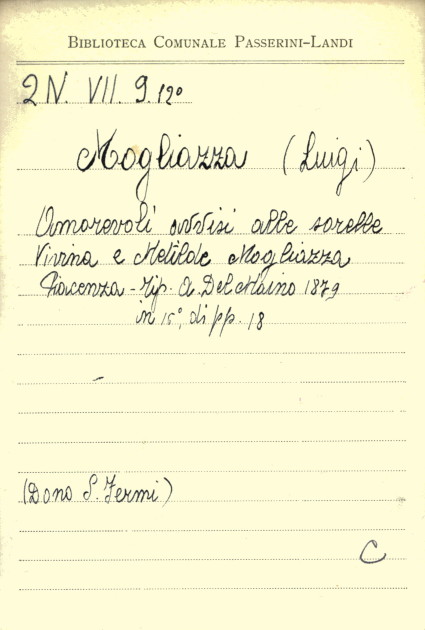 BIBLIOTECA COMUNALE PASSERINI-LANDI
2N. VII. 9. 12º
Mogliazza (Luigi)
Amorevoli avvisi alle sorelle
Vivina e Metilde Mogliazza
Piacenza - Tip. A. Del Maino 1879
in 16º, di pp. 18
(Dono S. Fermi)
C